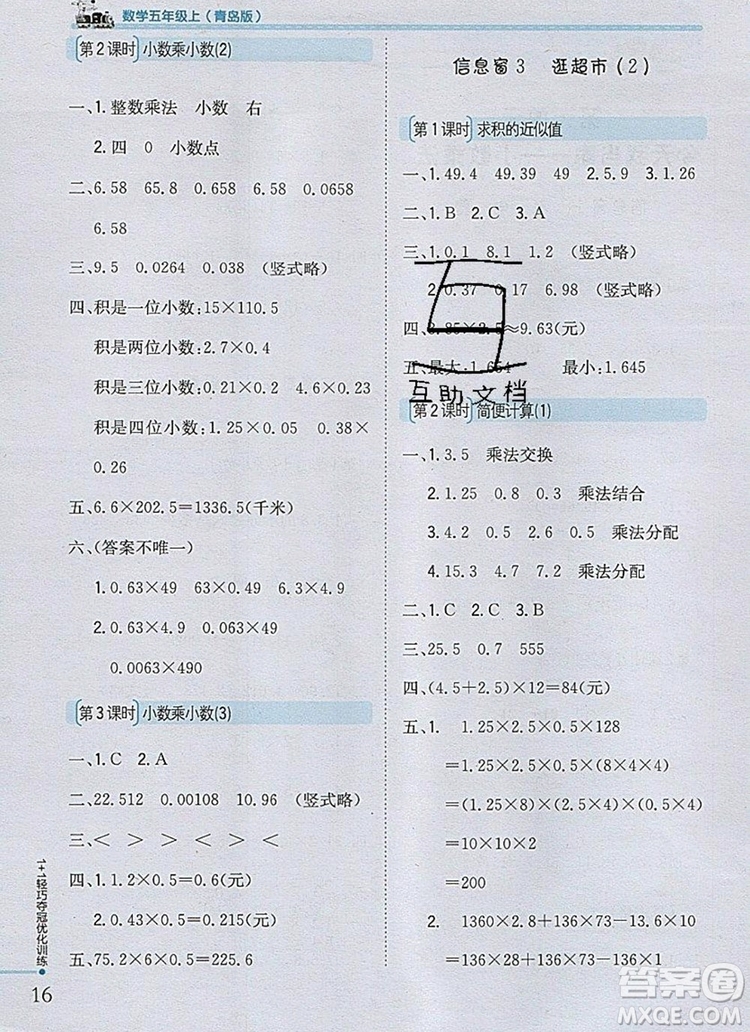 数学五年级上(青岛版)
第2课时 小数乘小数(2)
一、1.整数乘法 小数 右
2.四 0 小数点
二、6.58 65.8 0.658 6.58 0.0658
6.58
三、9.5 0.0264 0.038 (竖式略)
四、积是一位小数:15×110.5
积是两位小数:2.7×0.4
积是三位小数:0.36×0.5 4.6×0.23
积是四位小数:1.25×0.05 0.38×
0.26
五、6.6×202.5=1336.5(千米)
六、(答案不唯一)
1.0.63×49 63×0.49 6.3×4.9
2.0.063×49 0.63×4.9
0.0063×490
第3课时 小数乘小数(3)
一、1.C 2.A
二、22.512 0.00108 10.96 (竖式略)
三、< > > < > <
四、1.1.2×0.5=0.6(元)
2.0.43×0.5=0.215(元)
五、75.2×6×0.5=225.6
1+1轻巧夺冠优化训练
16
信息窗3 逛超市(2)
第1课时 求积的近似值
一、1.49.4 49.39 49 2.5.9 3.1.26
二、1.B 2.C 3.A
三、1.0.1 8.1 1.2 (竖式略)
2.0.37 0.17 6.98 (竖式略)
四、3.85×2.5≈9.63(元)
五、最大:1.654 最小:1.645
互助文档
第2课时 简便计算(1)
一、1.3.5 乘法交换
2.1.25 0.8 0.3 乘法结合
3.2.4 0.5 2.6 0.5 乘法分配
4.15.2 4.5 7.2 乘法分配
二、1.B 2.C 3.B
三、25.5 0.7 555
四、(4.5+2.5)×12=84(元)
五、1. 1.25×2.5×0.5×128
=1.25×2.5×0.5×(8×4×4)
=(1.25×8)×(2.5×4)×(0.5×4)
=10×10×2
=200
2. 1360×2.5+136×73-13.6×10
=136×25+136×73-136×1
答案圈
MXQE.COM